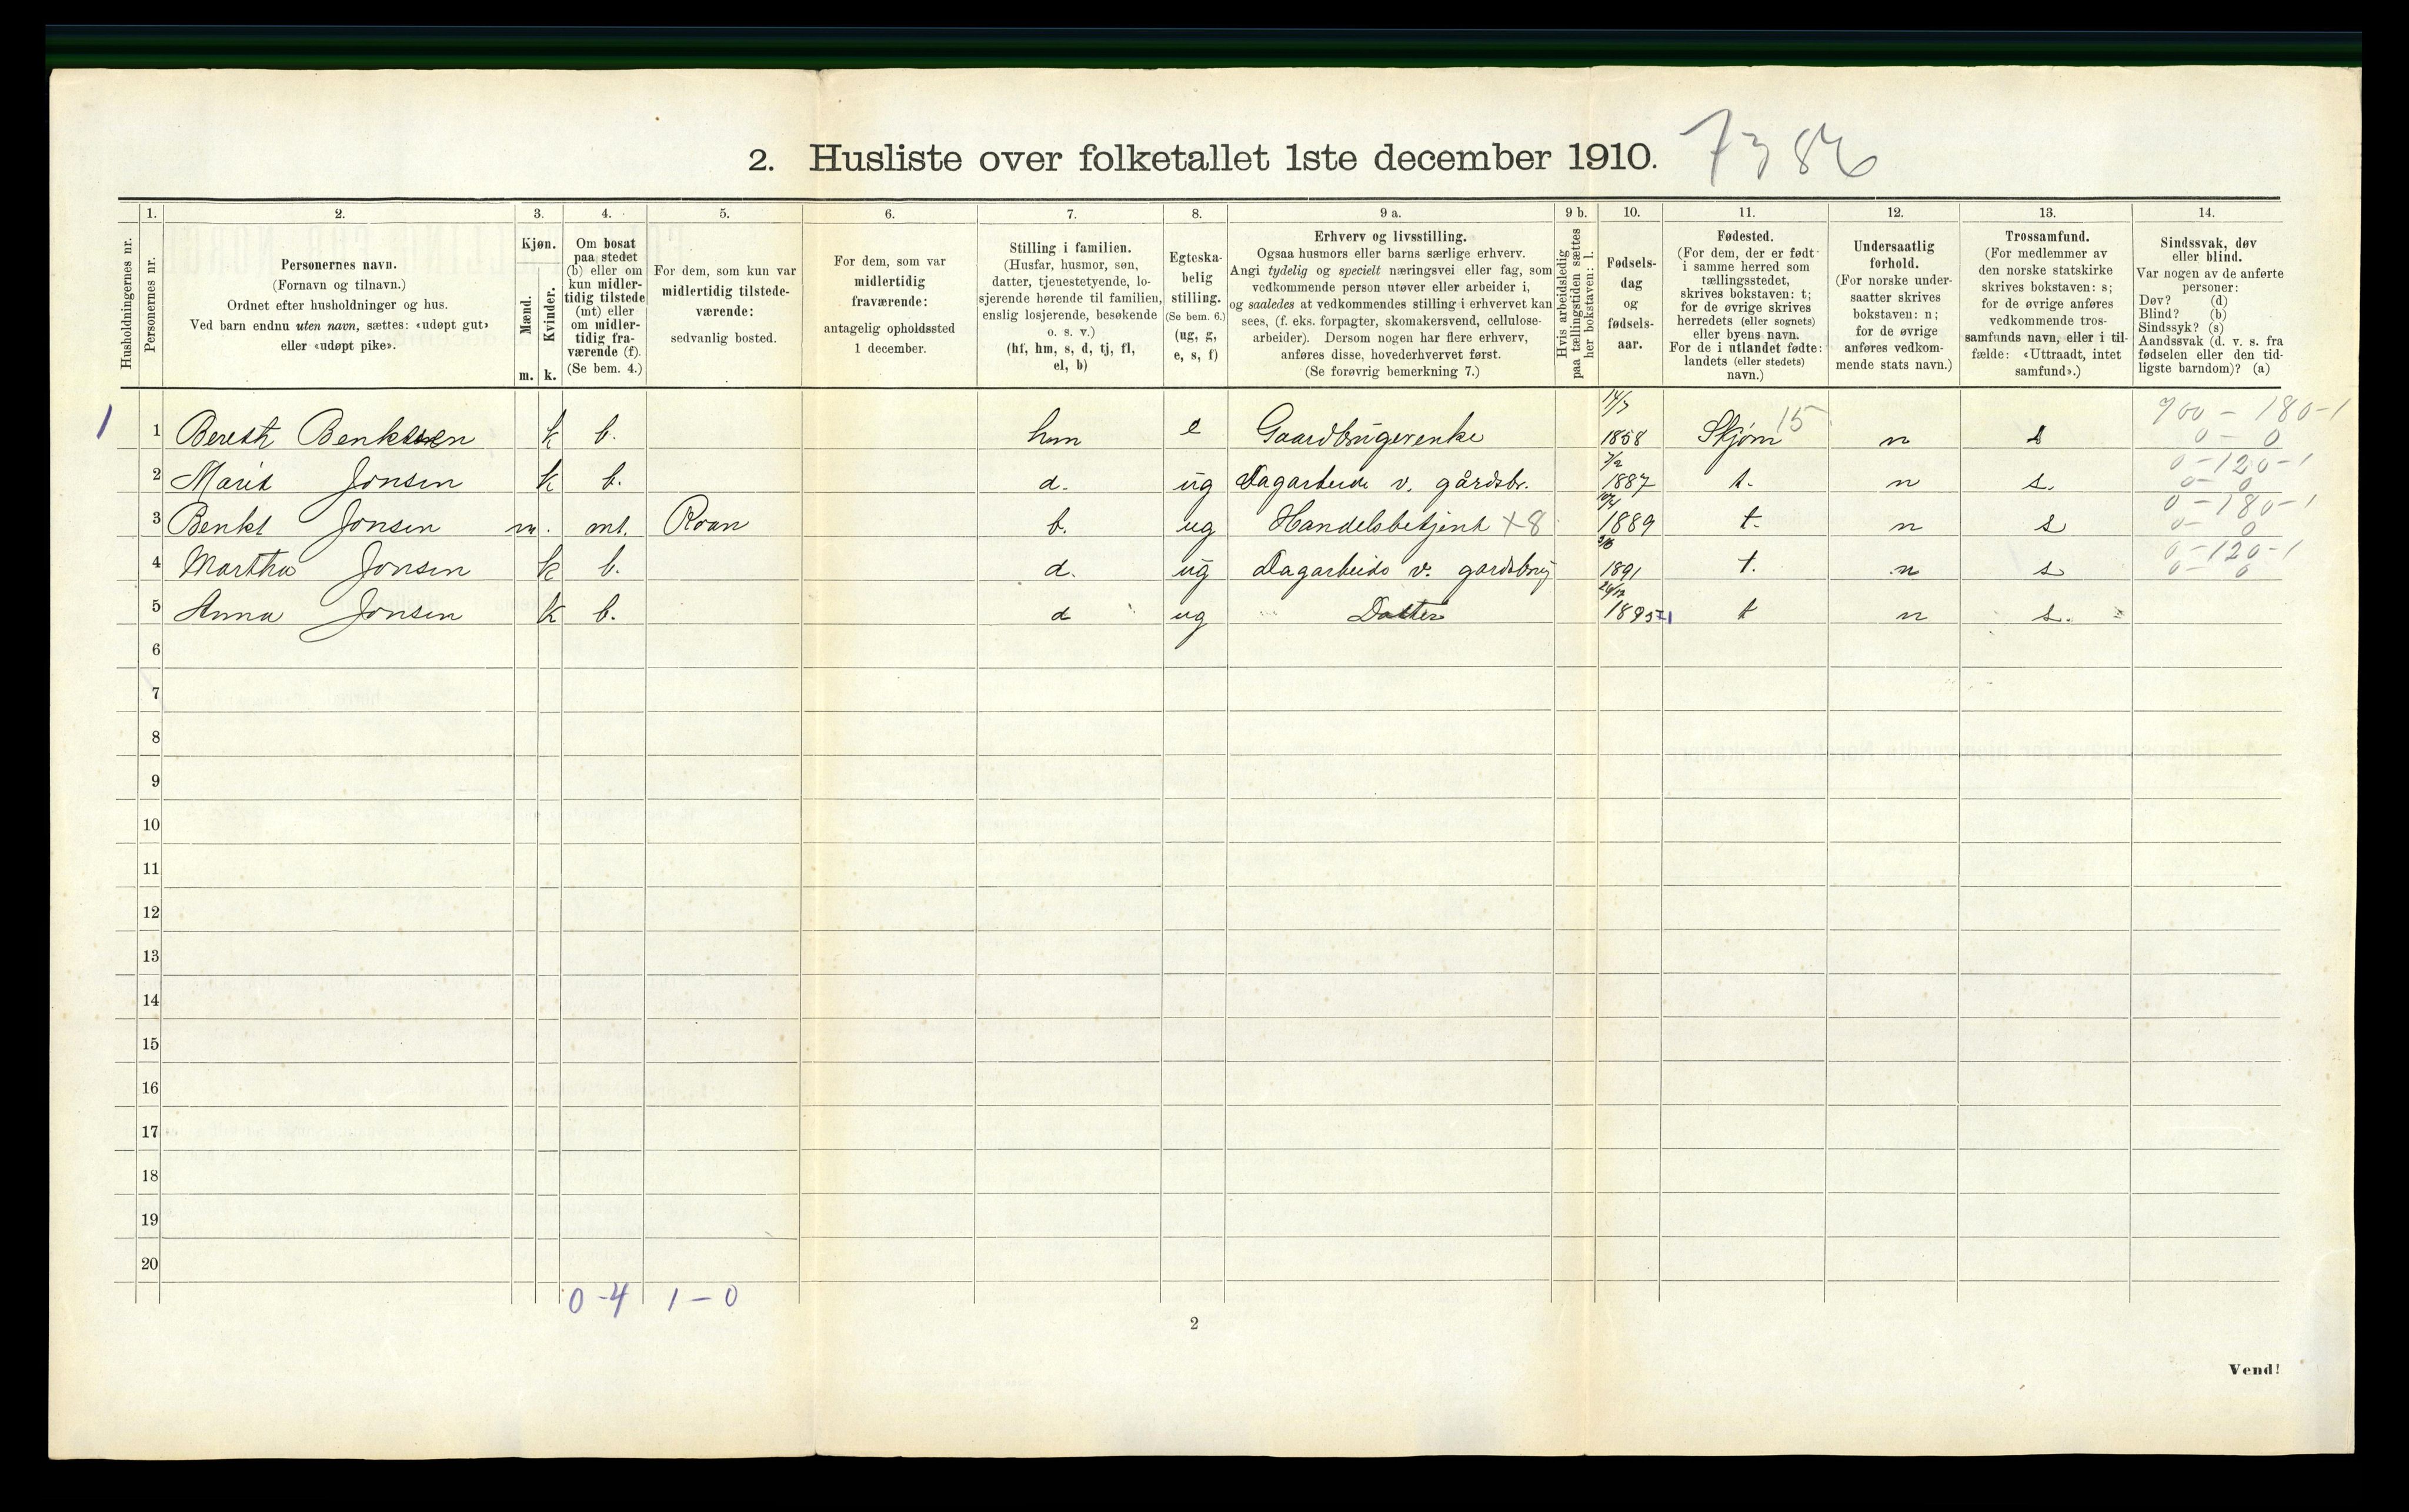 2. Husliste over folketallet 1ste december 1910. 7386
1. 2. 3. 4. 5. 6. 7. 8. 9 a. 9 b. 10. 11. 12. 13. 14.
Husholdningernes nr.
Personernes nr.
Personernes navn.
(Fornavn og tilnavn.)
Ordnet efter husholdninger og hus.
Ved barn endnu uten navn, sættes: «udøpt gut»
eller «udøpt pike».
Kjøn.
Mænd.
Kvinder.
m. k.
Om bosat
paa stedet
(b) eller om
kun midler-
tidig tilstede
(mt) eller
om midler-
tidig fra-
værende (f).
(Se bem. 4.)
For dem, som kun var
midlertidig tilstede-
værende:
sedvanlig bosted.
For dem, som var
midlertidig
fraværende:
antagelig opholdssted
1 december.
Stilling i familien.
(Husfar, husmor, søn,
datter, tjenestetyende, lo-
sjerende hørende til familien,
enslig losjerende, besøkende
o. s. v.)
(hf, hm, s, d, tj, fl,
el, b)
Egteska-
belig
stilling.
(Se bem. 6.)
(ug, g,
e, s, f)
Erhverv og livsstilling.
Ogsaa husmors eller barns særlige erhverv.
Angi tydelig og specielt næringsvei eller fag, som
vedkommende person utøver eller arbeider i,
og saaledes at vedkommendes stilling i erhvervet kan
sees, (f. eks. forpagter, skomakersvend, cellulose-
arbeider). Dersom nogen har flere erhverv,
anføres disse, hovederhvervet først.
(Se forøvrig bemerkning 7.)
Hvis arbeidsledig
paa tællingstiden sættes
her bokstaven: l.
Fødsels-
dag
og
fødsels-
aar.
Fødested.
(For dem, der er født
i samme herred som
tællingsstedet,
skrives bokstaven: t;
for de øvrige skrives
herredets (eller sognets)
eller byens navn.
For de i utlandet fødte:
landets (eller stedets)
navn.)
Undersaatlig
forhold.
(For norske under-
saatter skrives
bokstaven: n;
for de øvrige
anføres vedkom-
mende stats navn.)
Trossamfund.
(For medlemmer av
den norske statskirke
skrives bokstaven: s;
for de øvrige anføres
vedkommende tros-
samfunds navn, eller i til-
fælde: «Uttraadt, intet
samfund».)
Sindssvak, døv
eller blind.
Var nogen av de anførte
personer:
Døv? (d)
Blind? (b)
Sindssyk? (s)
Aandssvak (d. v. s. fra
fødselen eller den tid-
ligste barndom)? (a)
1 1 k b. hm e Gaardbrugerenke 1858 Skjørn 15 n s 900 - 180-1
0 - 0
2 Marit Jonsen k b. d. ug Dagarbeide v. gårdsbr. 1887 t. n s. 0-120-1
0- 0
3 Benkt Jonsen m. mt. Roan b. ug Handelsbetjent +8 1889 t. n s 0-180-1
0- 0
4 Martha Jonsen k b. d. ug Dagarbeide v. 1891 t. n s 0-120-1
0- 0
5 Anna Jonsen k b. d ug Datter 1895 t n s.
6
7
8
9
10
11
12
13
14
15
16
17
18
19
20
0-4 1-0
2
Vend!